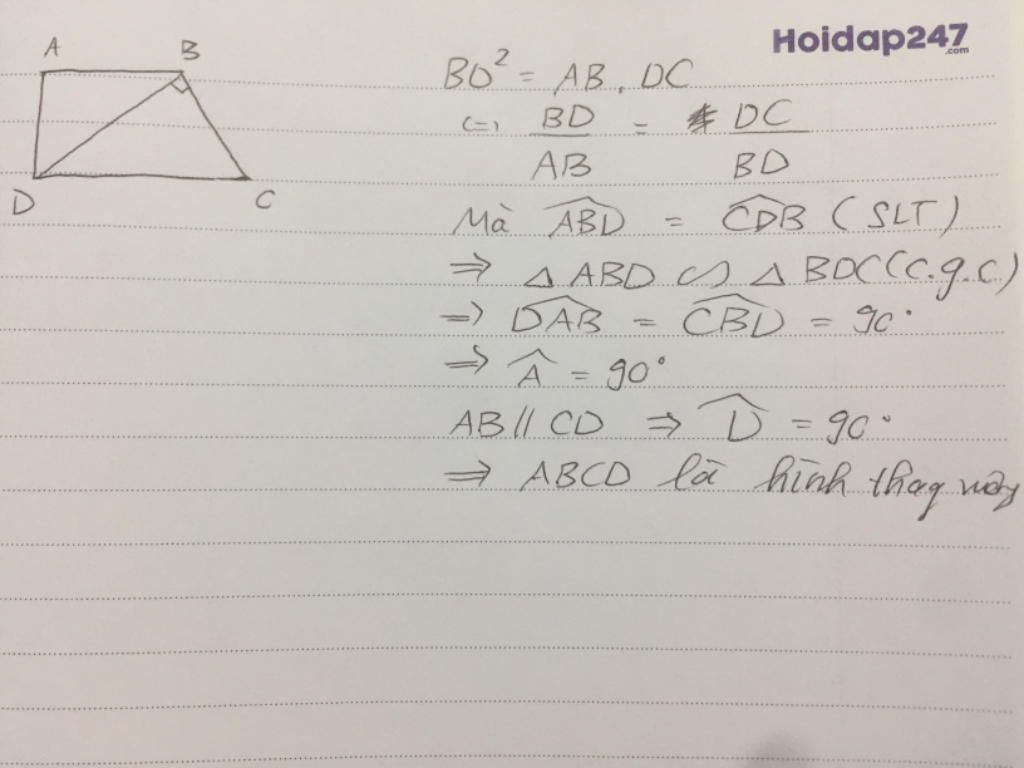 Hoidap247
.com
A B
D C
BD² = AB . DC
<=> BD/AB = DC/BD
Mà ABD̂ = CDB̂ (SLT)
=> △ ABD ∽ △ BDC (c.g.c)
=> DAB̂ = CBD̂ = 90°
=> Â = 90°
AB // CD => D̂ = 90°
=> ABCD là hình thag